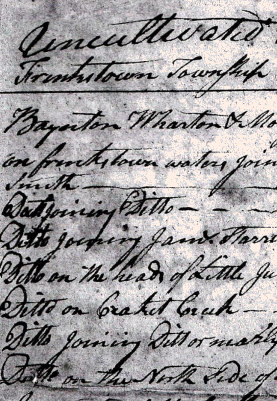 Uncultivated
Frankstown Township
Baynton Wharton & Mo
on frankstown waters join
Smith
Ditto joining Ditto
Ditto joining James Harri
Ditto on the head of Little Ju
Ditto on Croket Creek
Ditto Joining Ditto or
Ditto on the North Side of